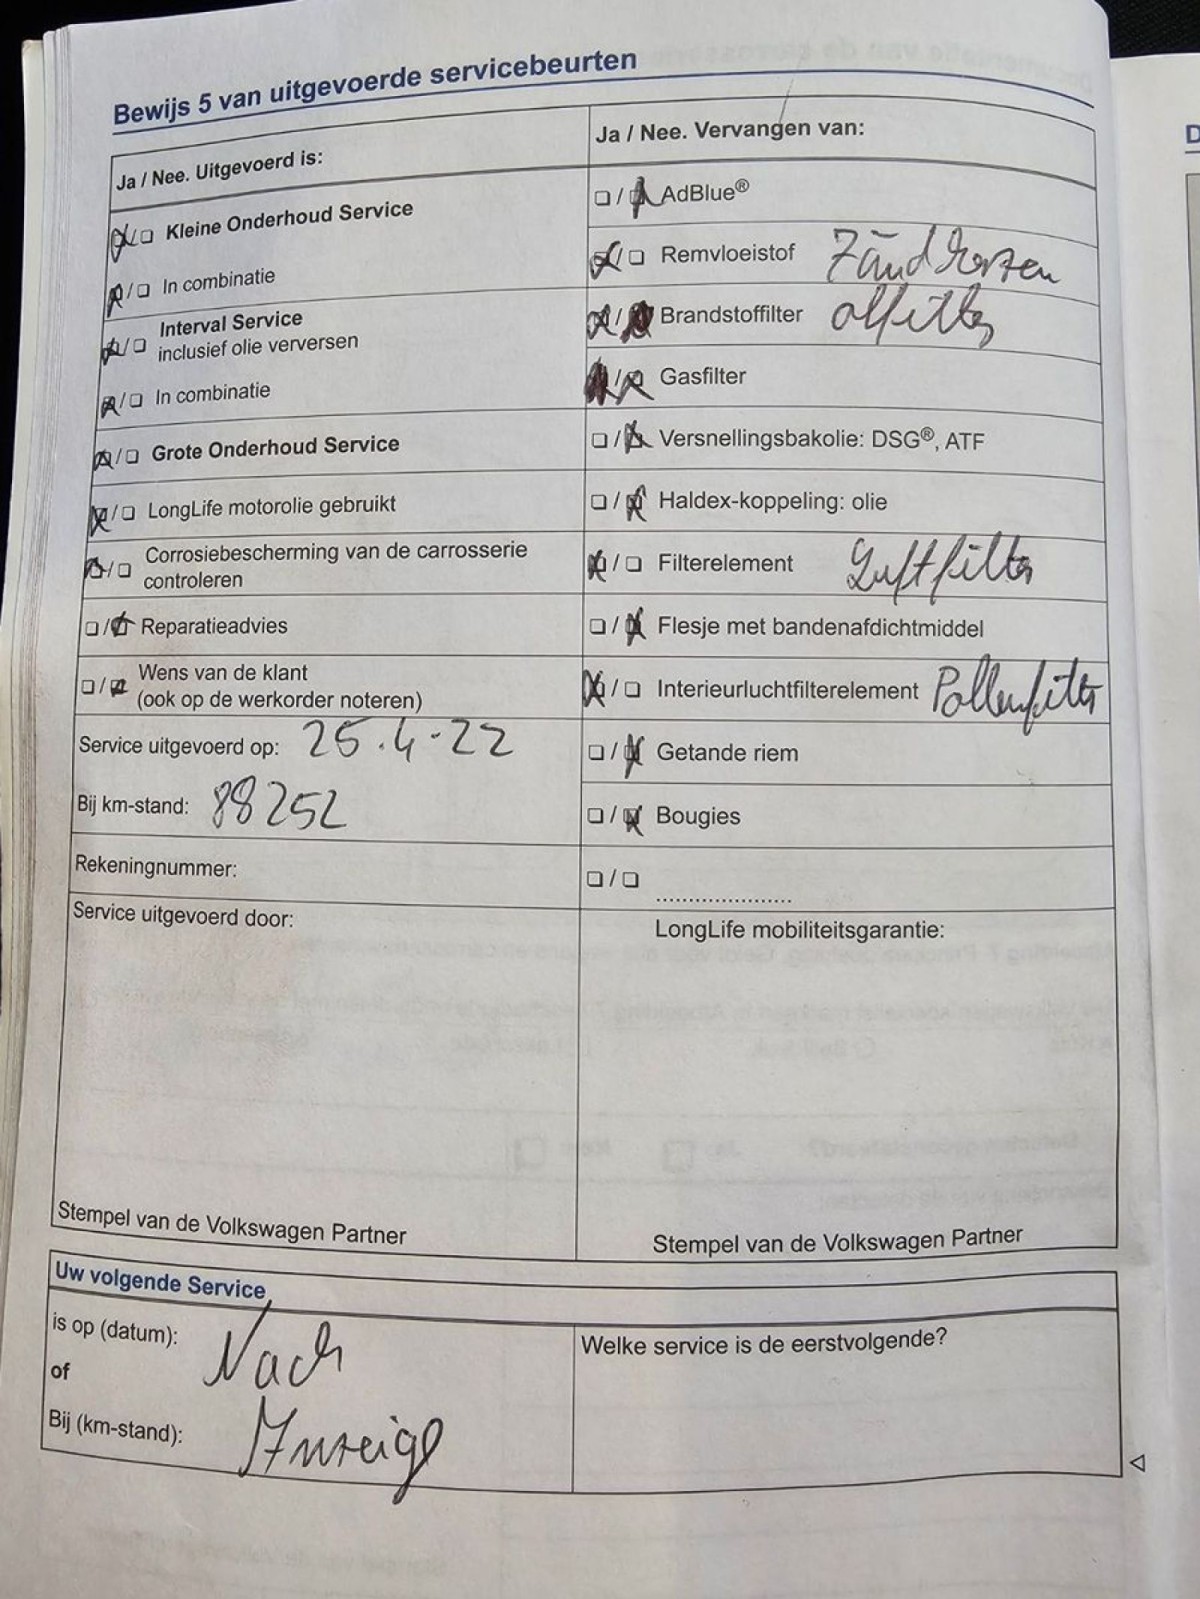 Bewijs 5 van uitgevoerde servicebeurten
Ja / Nee. Uitgevoerd is:
Kleine Onderhoud Service
In combinatie
Interval Service
inclusief olie verversen
In combinatie
Grote Onderhoud Service
LongLife motorolie gebruikt
Corrosiebescherming van de carrosserie
controleren
Reparatieadvies
Wens van de klant
(ook op de werkorder noteren)
Service uitgevoerd op: 25.4.22
Bij km-stand: 88252
Rekeningnummer:
Service uitgevoerd door:
Stempel van de Volkswagen Partner
Ja / Nee. Vervangen van:
AdBlue®
Remvloeistof Zündkerzen
Brandstoffilter ölfilter
Gasfilter
Versnellingsbakolie: DSG®, ATF
Haldex-koppeling: olie
Filterelement Luftfilter
Flesje met bandenafdichtmiddel
Interieurluchtfilterelement Pollenfilter
Getande riem
Bougies
LongLife mobiliteitsgarantie:
Stempel van de Volkswagen Partner
Uw volgende Service
is op (datum): Nach
of
Bij (km-stand): Anzeige
Welke service is de eerstvolgende?
D